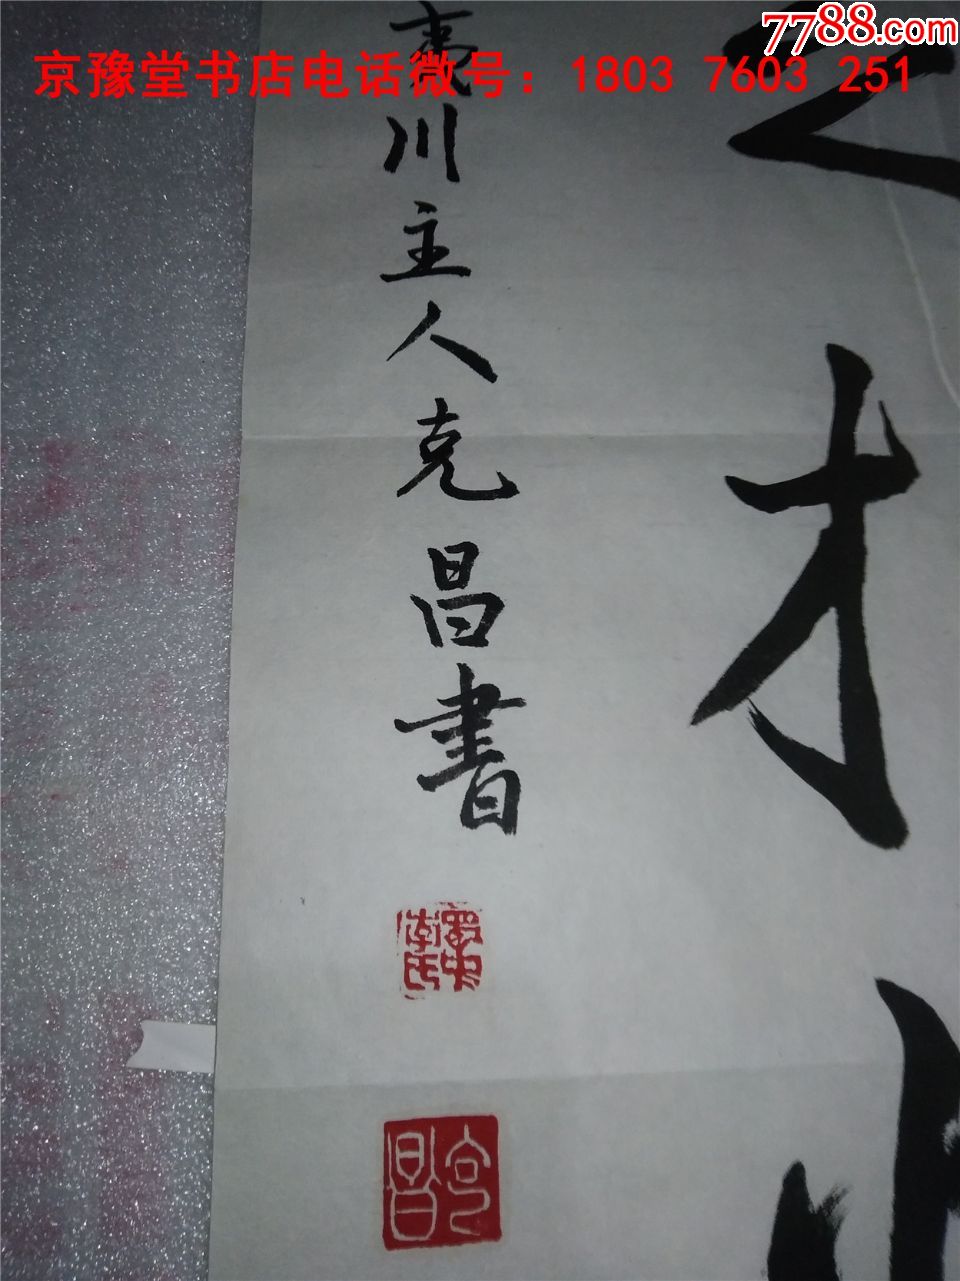 7788.com
京豫堂书店电话微号：1803 7603 251
川主人克昌書
才
李氏
克昌